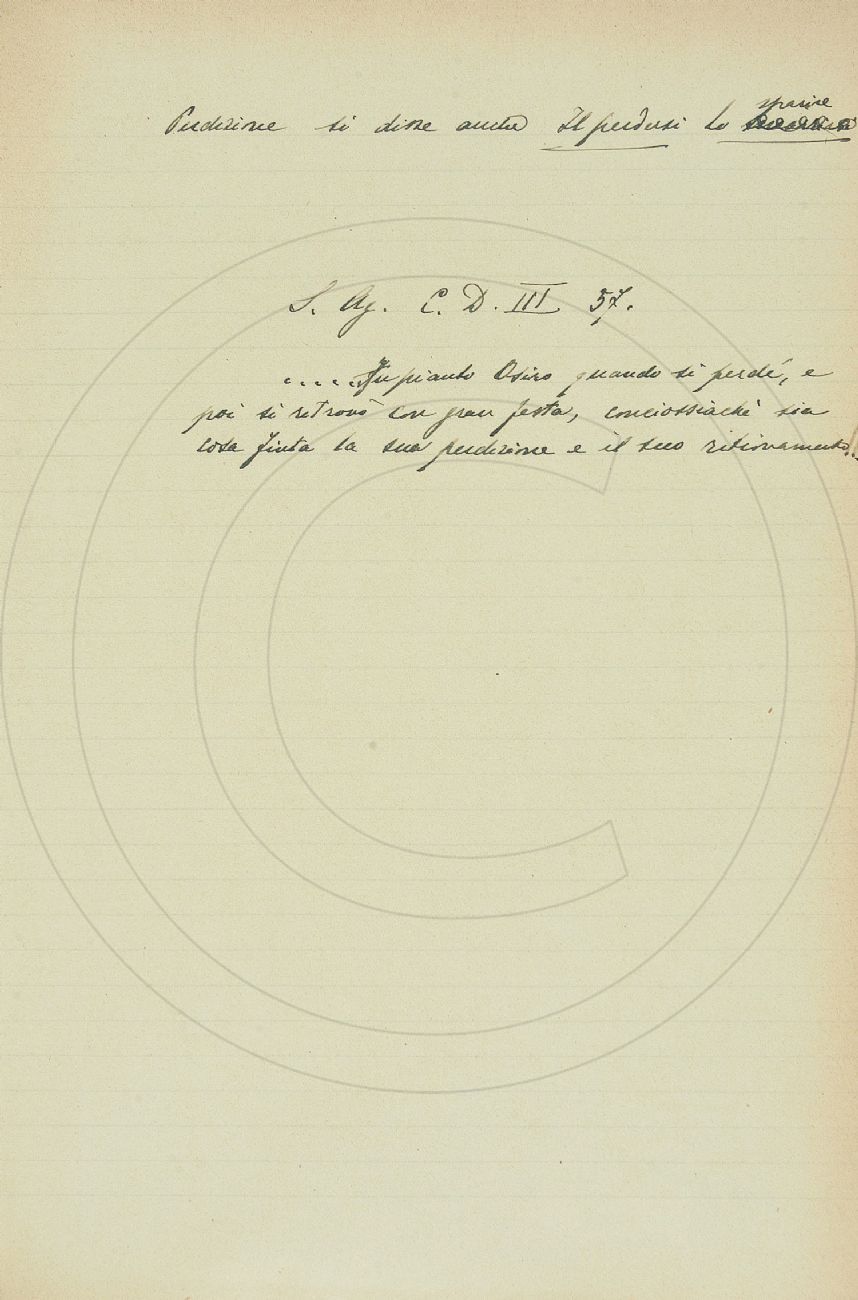 Perdizione si disse anche Il perdersi Lo sparire
S. Ag. C. D. III 57.
.....Fu pianto Osiro quando si perdé, e
poi si retrovò con gran festa, conciossiachè sia
cosa finta la sua perdizione e il suo ritrovamento...